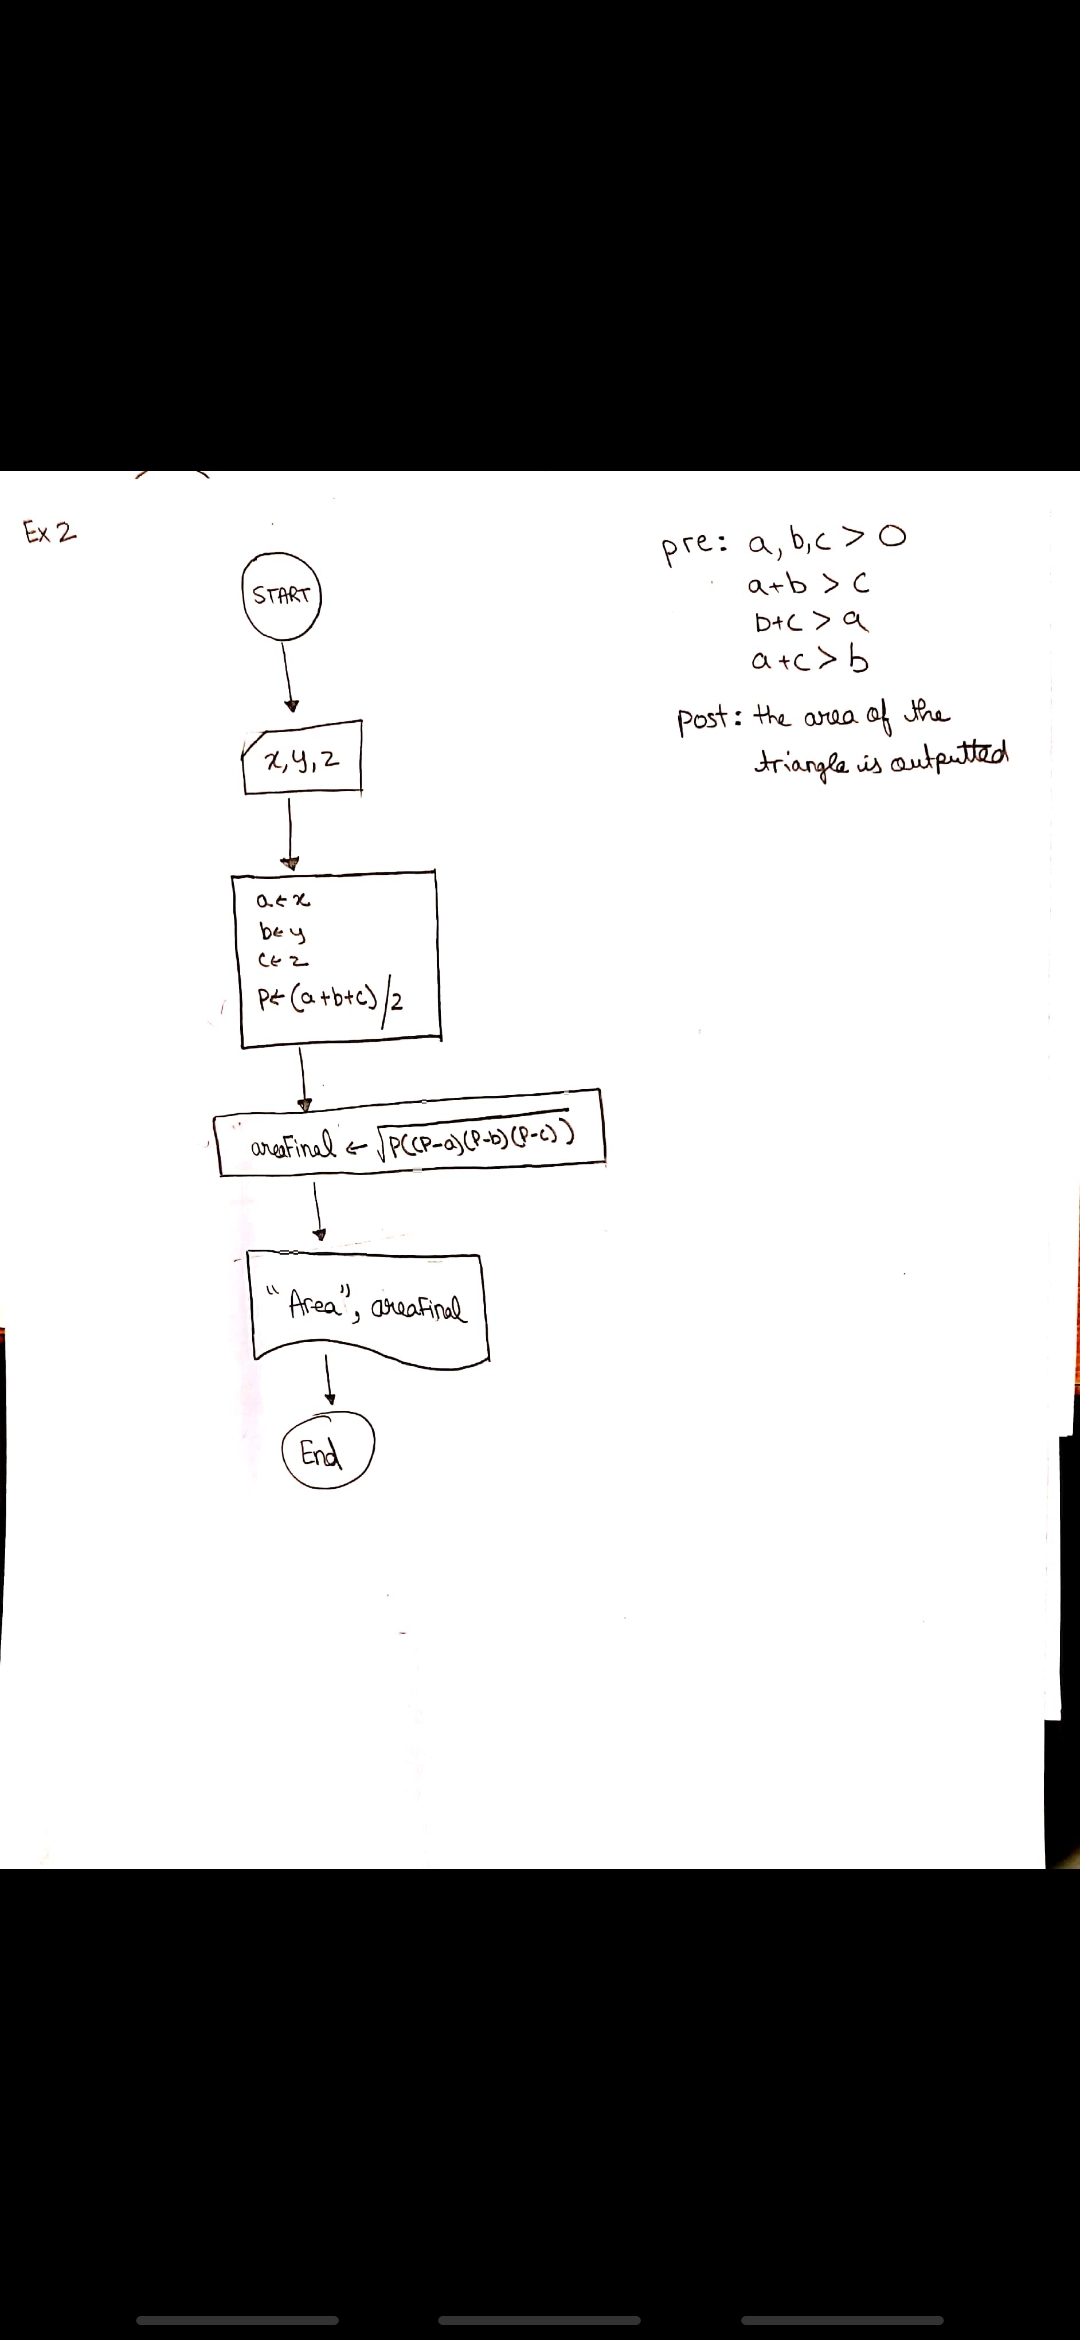 Ex 2
START
x, y, z
a ← x
b ← y
c ← z
P ← (a+b+c)/2
areaFinal ← √P((P-a)(P-b)(P-c))
"Area", areaFinal
End
pre: a, b, c > 0
a+b > c
b+c > a
a+c > b
post: the area of the
triangle is outputted